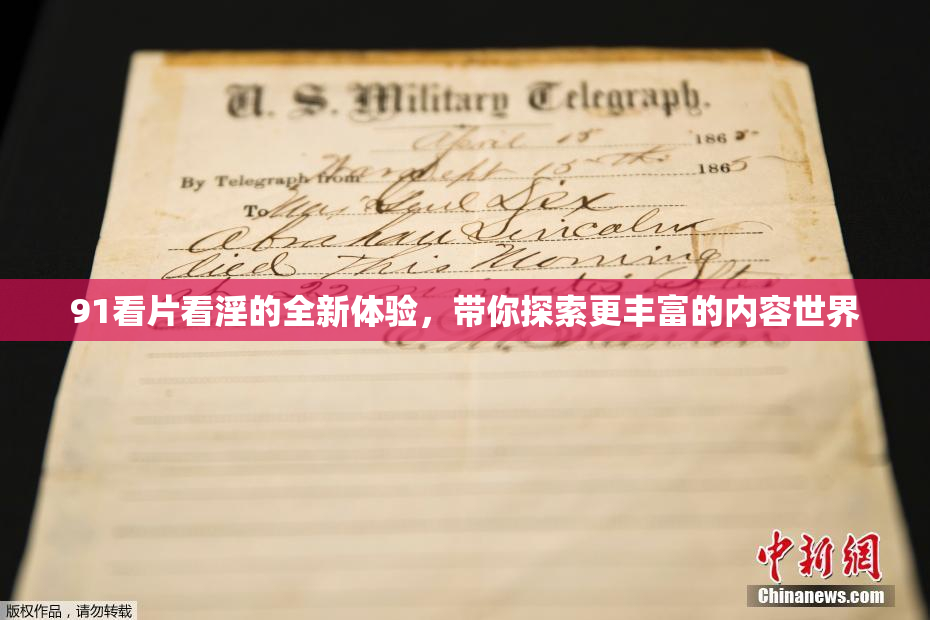 U. S. Military Telegraph.
April 15 1865
By Telegraph from War Dept 15th 1865
To Maj Genl Dix
Abraham Lincoln
died This Morning
at 22 minutes after
91看片看淫的全新体验，带你探索更丰富的内容世界
中新网
Chinanews.com
版权作品，请勿转载